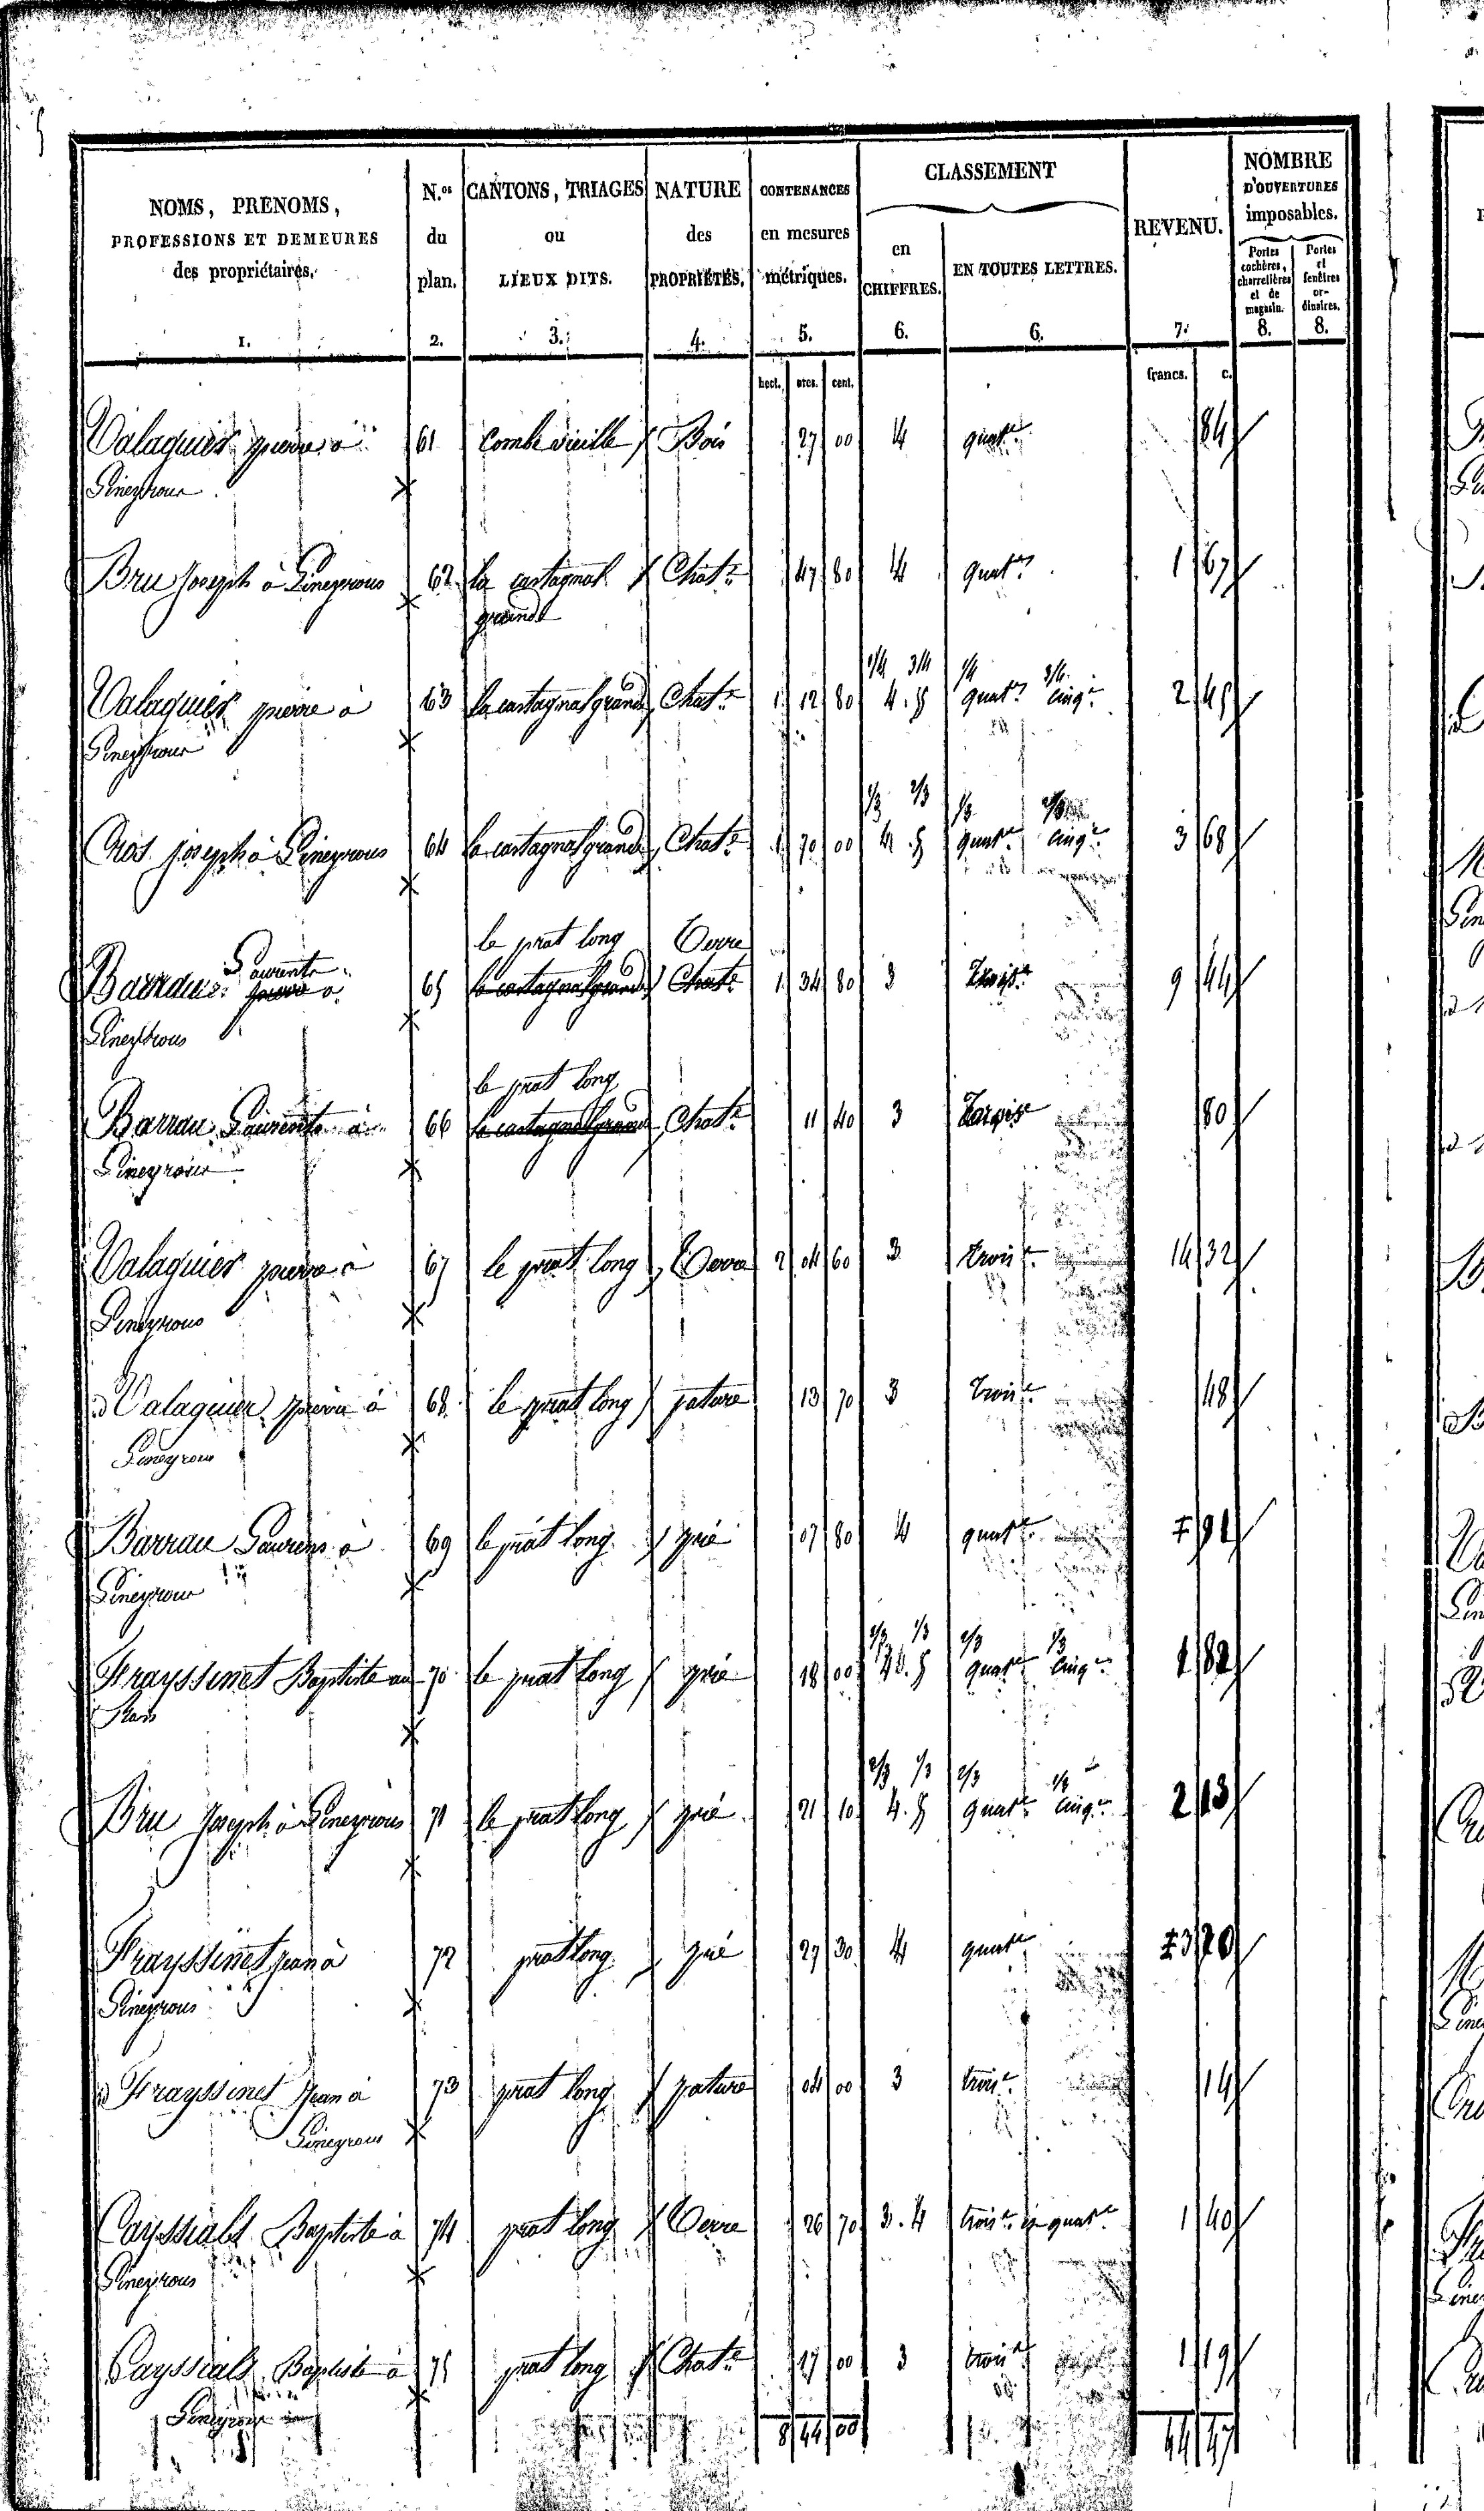 NOMS, PRENOMS,
PROFESSIONS ET DEMEURES
des propriétaires.
1.
N.os
du
plan.
2.
CANTONS, TRIAGES
ou
LIEUX DITS.
3.
NATURE
des
PROPRIÉTÉS.
4.
CONTENANCES
en mesures
métriques.
5.
CLASSEMENT
en
CHIFFRES.
6.
EN TOUTES LETTRES.
6.
REVENU.
7.
NOMBRE
D'OUVERTURES
imposables.
Portes
cochères,
charretières
et de
magasin.
8.
Portes
et
fenêtres
or-
dinaires.
8.
hect. ares. cent. francs. c.
Valaquier pierre à 61 Combe vieille Bois 27 00 4 quatre 84
Gineyrous
Bru Joseph à Gineyrous 62 la castagnal Chatre 47 80 4 quatre 1 67
grande
1/4 3/4 1/4 3/4
Valaquier pierre à 63 la castagnal grande Chatre 1 12 80 4. 5 quatre cinqe 2 45
Gineyrous
1/3 2/3 1/3 2/3
Cros joseph à Gineyrous 64 la castagnal grande Chatre 1 70 00 4. 5 quatre cinqe 3 68
le prat long Terre
Laurents
Barrau pierre à 65 la castagnal grande Chatre 1 34 80 3 troise 9 44
Gineyrous
le prat long
Barrau Laurents à 66 la castagnal grande Chatre 11 40 3 troise 80
Gineyrous
Valaquier pierre à 67 le prat long Terre 2 04 60 3 troise 14 32
Gineyrous
Valaquier pierre à 68 le prat long pature 13 70 3 troise 48
Gineyrous
Barrau Laurens à 69 le prat long pré 07 80 4 quatre 91
Gineyrous
2/3 1/3 2/3 1/3
Frayssinet Baptiste au 70 le prat long pré 18 00 4. 5 quatre cinqe 1 82
2/3 1/3 2/3 1/3
Bru Joseph à Gineyrous 71 le prat long pré 21 10 4. 5 quatre cinqe 2 13
Frayssinet jean à 72 prat long pré 27 30 4 quatre 3 20
Gineyrous
Frayssinet Jean à 73 prat long pature 04 00 3 troise 14
Gineyrous
Cayssials Baptiste à 74 prat long Terre 26 70 3. 4 troise et quatre 1 40
Gineyrous
Cayssials Baptiste à 75 prat long Chatre 17 00 3 troise 1 19
Gineyrous
8 44 00 44 47